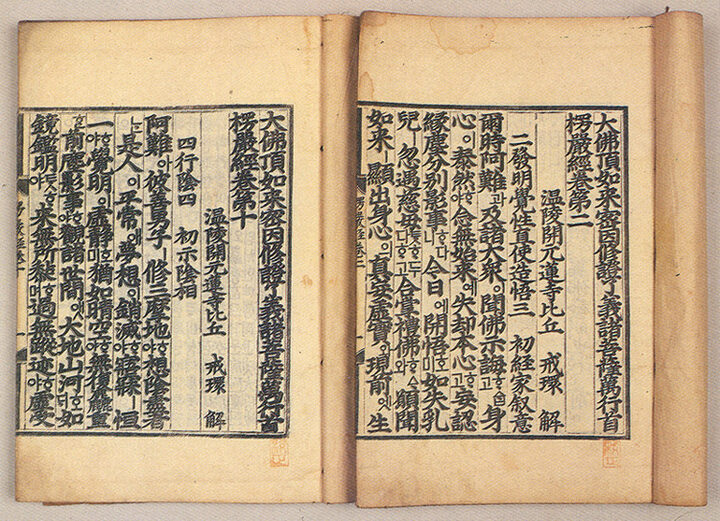 大佛頂如來密因修證了義諸菩薩萬行首
楞嚴經卷第二
溫陵開元蓮寺比丘 戒環 解
二發明覺性直使造悟三 初經家叙意
爾時阿難과及諸大衆이聞佛示誨ᄒᆞ고身
心이泰然ᄒᆞ야念無始來예失却本心ᄒᆞ고妄認
緣塵分別影事ㅣ今日에開悟호미如失乳
兒ㅣ忽遇慈母合掌禮佛願聞
如來ㅣ顯出身心의眞妄虛實와現前에生
大佛頂如來密因修證了義諸菩薩萬行首
楞嚴經卷第十
溫陵開元蓮寺比丘 戒環 解
四行陰四 初示陰相
阿難아彼善男子ㅣ修三摩地ᄒᆞ야想陰盡者
ᄂᆞᆫ是人이平常애夢想이銷滅ᄒᆞ야寤寐ㅣ恒
一ᄒᆞ야覺明이虛靜호미猶如晴空ᄒᆞ야無復麤重
前塵影事ᄒᆞ야觀諸世間앳大地山河호ᄃᆡ如
鏡鑑明ᄒᆞ야來無所黏ᄒᆞ며過無蹤迹ᄒᆞ야虛受